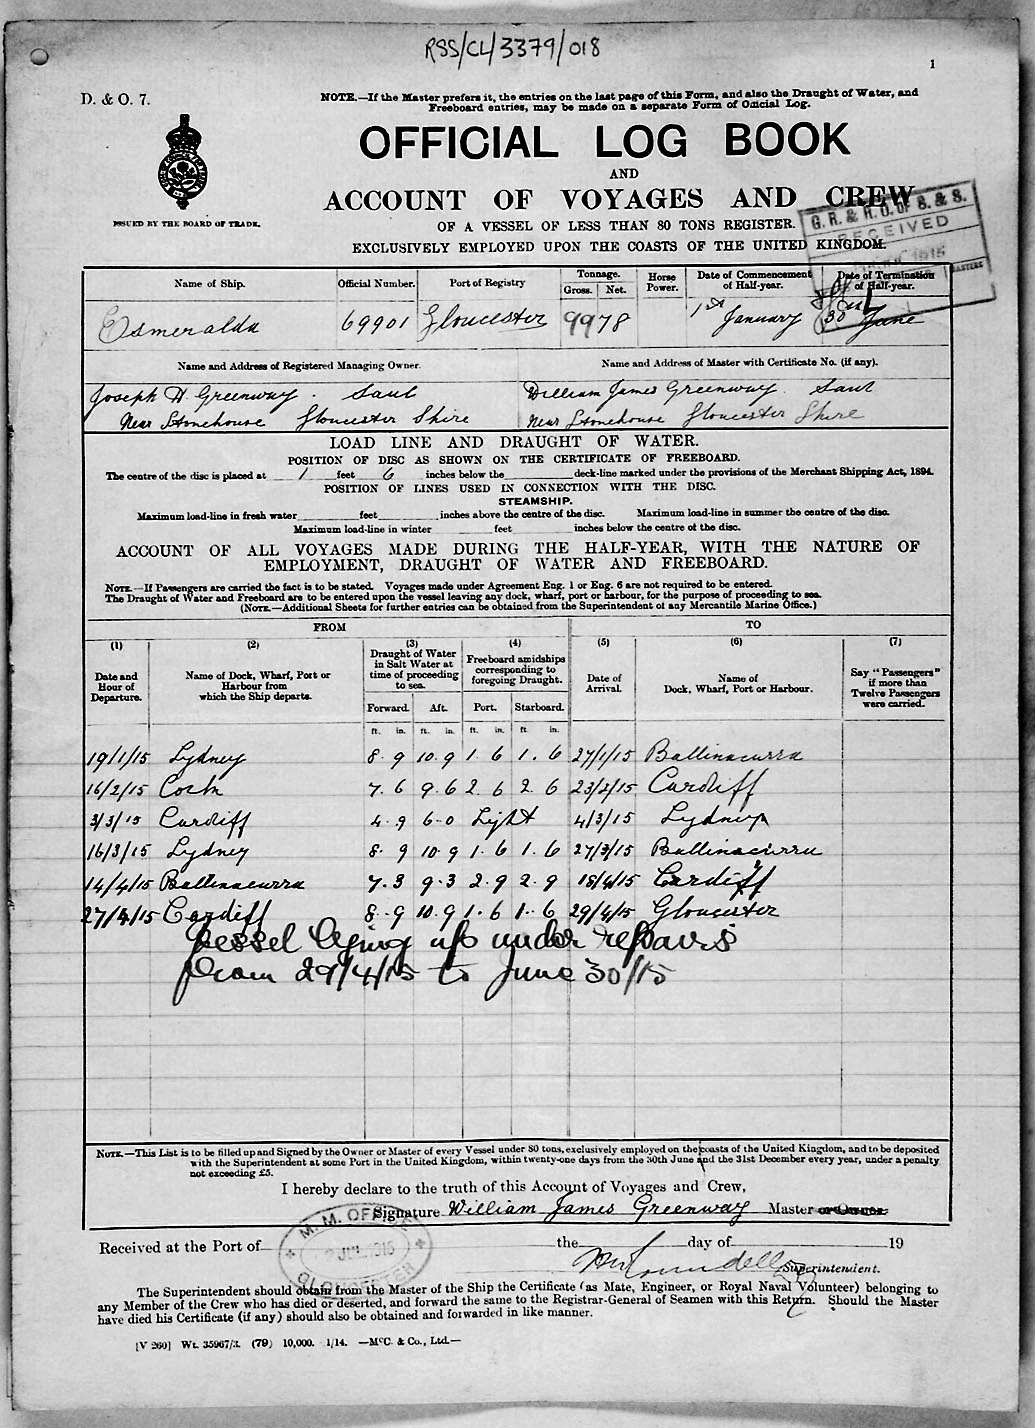 RSS/CL/3379/018
1
D. & O. 7.
NOTE.—If the Master prefers it, the entries on the last page of this Form, and also the Draught of Water, and
Freeboard entries, may be made on a separate Form of Official Log.
OFFICIAL LOG BOOK
AND
ACCOUNT OF VOYAGES AND CREW
OF A VESSEL OF LESS THAN 80 TONS REGISTER.
EXCLUSIVELY EMPLOYED UPON THE COASTS OF THE UNITED KINGDOM.
ISSUED BY THE BOARD OF TRADE.
G. R. & R. O. of S. & S.
RECEIVED
1915
MASTERS
Name of Ship. Official Number. Port of Registry Tonnage. Gross. Net. Horse Power. Date of Commencement of Half-year. Date of Termination of Half-year.
Esmeralda 69901 Gloucester 99 78 1st January 30 June
Name and Address of Registered Managing Owner. Name and Address of Master with Certificate No. (if any).
Joseph H Greenway. Saul William James Greenway. Saul
Near Stonehouse Gloucester Shire Near Stonehouse Gloucester Shire
LOAD LINE AND DRAUGHT OF WATER.
POSITION OF DISC AS SHOWN ON THE CERTIFICATE OF FREEBOARD.
The centre of the disc is placed at 1 feet 6 inches below the deck-line marked under the provisions of the Merchant Shipping Act, 1894.
POSITION OF LINES USED IN CONNECTION WITH THE DISC.
STEAMSHIP.
Maximum load-line in fresh water feet inches above the centre of the disc. Maximum load-line in summer the centre of the disc.
Maximum load-line in winter feet inches below the centre of the disc.
ACCOUNT OF ALL VOYAGES MADE DURING THE HALF-YEAR, WITH THE NATURE OF
EMPLOYMENT, DRAUGHT OF WATER AND FREEBOARD.
NOTE.—If Passengers are carried the fact is to be stated. Voyages made under Agreement Eng. 1 or Eng. 6 are not required to be entered.
The Draught of Water and Freeboard are to be entered upon the vessel leaving any dock, wharf, port or harbour, for the purpose of proceeding to sea.
(NOTE.—Additional Sheets for further entries can be obtained from the Superintendent of any Mercantile Marine Office.)
FROM TO
(1) (2) (3) (4) (5) (6) (7)
Date and Hour of Departure. Name of Dock, Wharf, Port or Harbour from which the Ship departs. Draught of Water in Salt Water at time of proceeding to sea. Freeboard amidships corresponding to foregoing Draught. Date of Arrival. Name of Dock, Wharf, Port or Harbour. Say "Passengers" if more than Twelve Passengers were carried.
Forward. Aft. Port. Starboard.
ft. in. ft. in. ft. in. ft. in.
19/1/15 Lydney 8 9 10 9 1 6 1. 6 27/1/15 Ballinacurra
16/2/15 Cork 7. 6 9. 6 2. 6 2. 6 23/2/15 Cardiff
3/3/15 Cardiff 4. 9 6-0 Light 4/3/15 Lydney
16/3/15 Lydney 8. 9 10. 9 1. 6 1. 6 27/3/15 Ballinacurra
14/4/15 Ballinacurra 7. 3 9. 3 2. 9 2. 9 18/4/15 Cardiff
27/4/15 Cardiff 8. 9 10. 9 1. 6 1. 6 29/4/15 Gloucester
Vessel lying up under repairs
from 29/4/15 to June 30/15
NOTE.—This List is to be filled up and Signed by the Owner or Master of every Vessel under 80 tons, exclusively employed on the coasts of the United Kingdom, and to be deposited
with the Superintendent at some Port in the United Kingdom, within twenty-one days from the 30th June and the 31st December every year, under a penalty
not exceeding £5.
I hereby declare to the truth of this Account of Voyages and Crew,
Signature William James Greenway Master or Owner.
M. M. OFFICE
2 JUL 1915
GLOUCESTER
Received at the Port of the day of 19
Superintendent.
The Superintendent should obtain from the Master of the Ship the Certificate (as Mate, Engineer, or Royal Naval Volunteer) belonging to
any Member of the Crew who has died or deserted, and forward the same to the Registrar-General of Seamen with this Return. Should the Master
have died his Certificate (if any) should also be obtained and forwarded in like manner.
[V 260] Wt. 35967/3. (79) 10,000. 1/14. —McC. & Co., Ltd.—